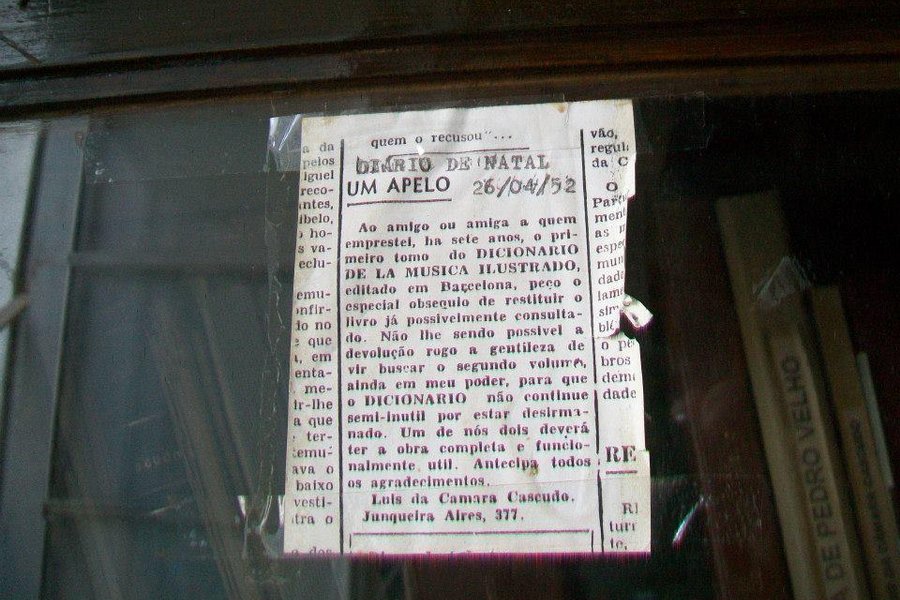 quem o recusou"...
DIÁRIO DE NATAL
UM APELO 26/04/52
Ao amigo ou amiga a quem
emprestei, ha sete anos, o pri-
meiro tomo do DICIONARIO
DE LA MUSICA ILUSTRADO,
editado em Barcelona, peço o
especial obsequio de restituir o
livro já possivelmente consulta-
do. Não lhe sendo possivel a
devolução rugo a gentileza de
vir buscar o segundo volume,
ainda em meu poder, para que
o DICIONARIO não continue
semi-inutil por estar desirma-
nado. Um de nós dois deverá
ter a obra completa e funcio-
nalmente util. Antecipa todos
os agradecimentos.
Luis da Camara Cascudo.
Junqueira Aires, 377.
a da
pelos
iguel
reco-
ntes,
ibelo,
ho-
s va-
eclu-
emu-
nfir-
do no
e que
, em
enta-
me-
ir-lhe
a que
ter-
emu-
ava o
baixo
vesti-
tra o
vão,
regul
da C
O
Par
ment
as
espe
mun
dad
lame
o pe
bros
dem
dade
RE
RI
turr
te,
DE PEDRO VELHO